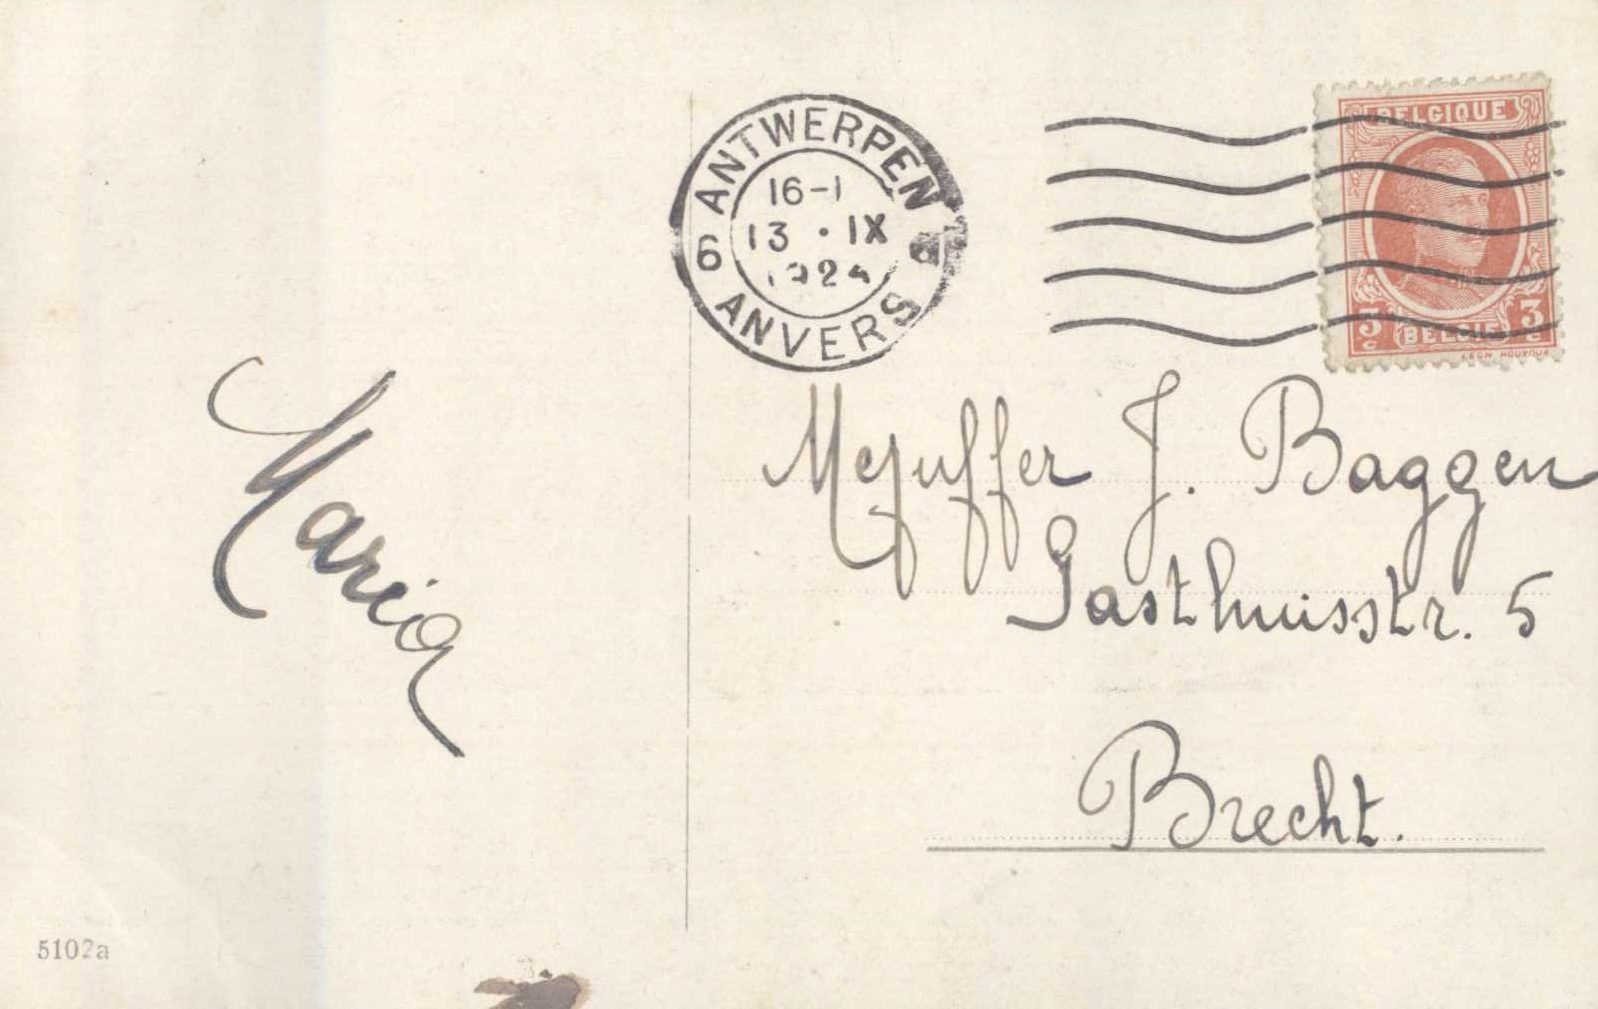 ANTWERPEN
16-1
13 • IX
1924
6 6
ANVERS
BELGIQUE
3 c 3 c
BELGIE
LEON HOUYOUX
Mejuffer J. Baggen
Gasthuisstr. 5
Brecht.
Maria
5102a